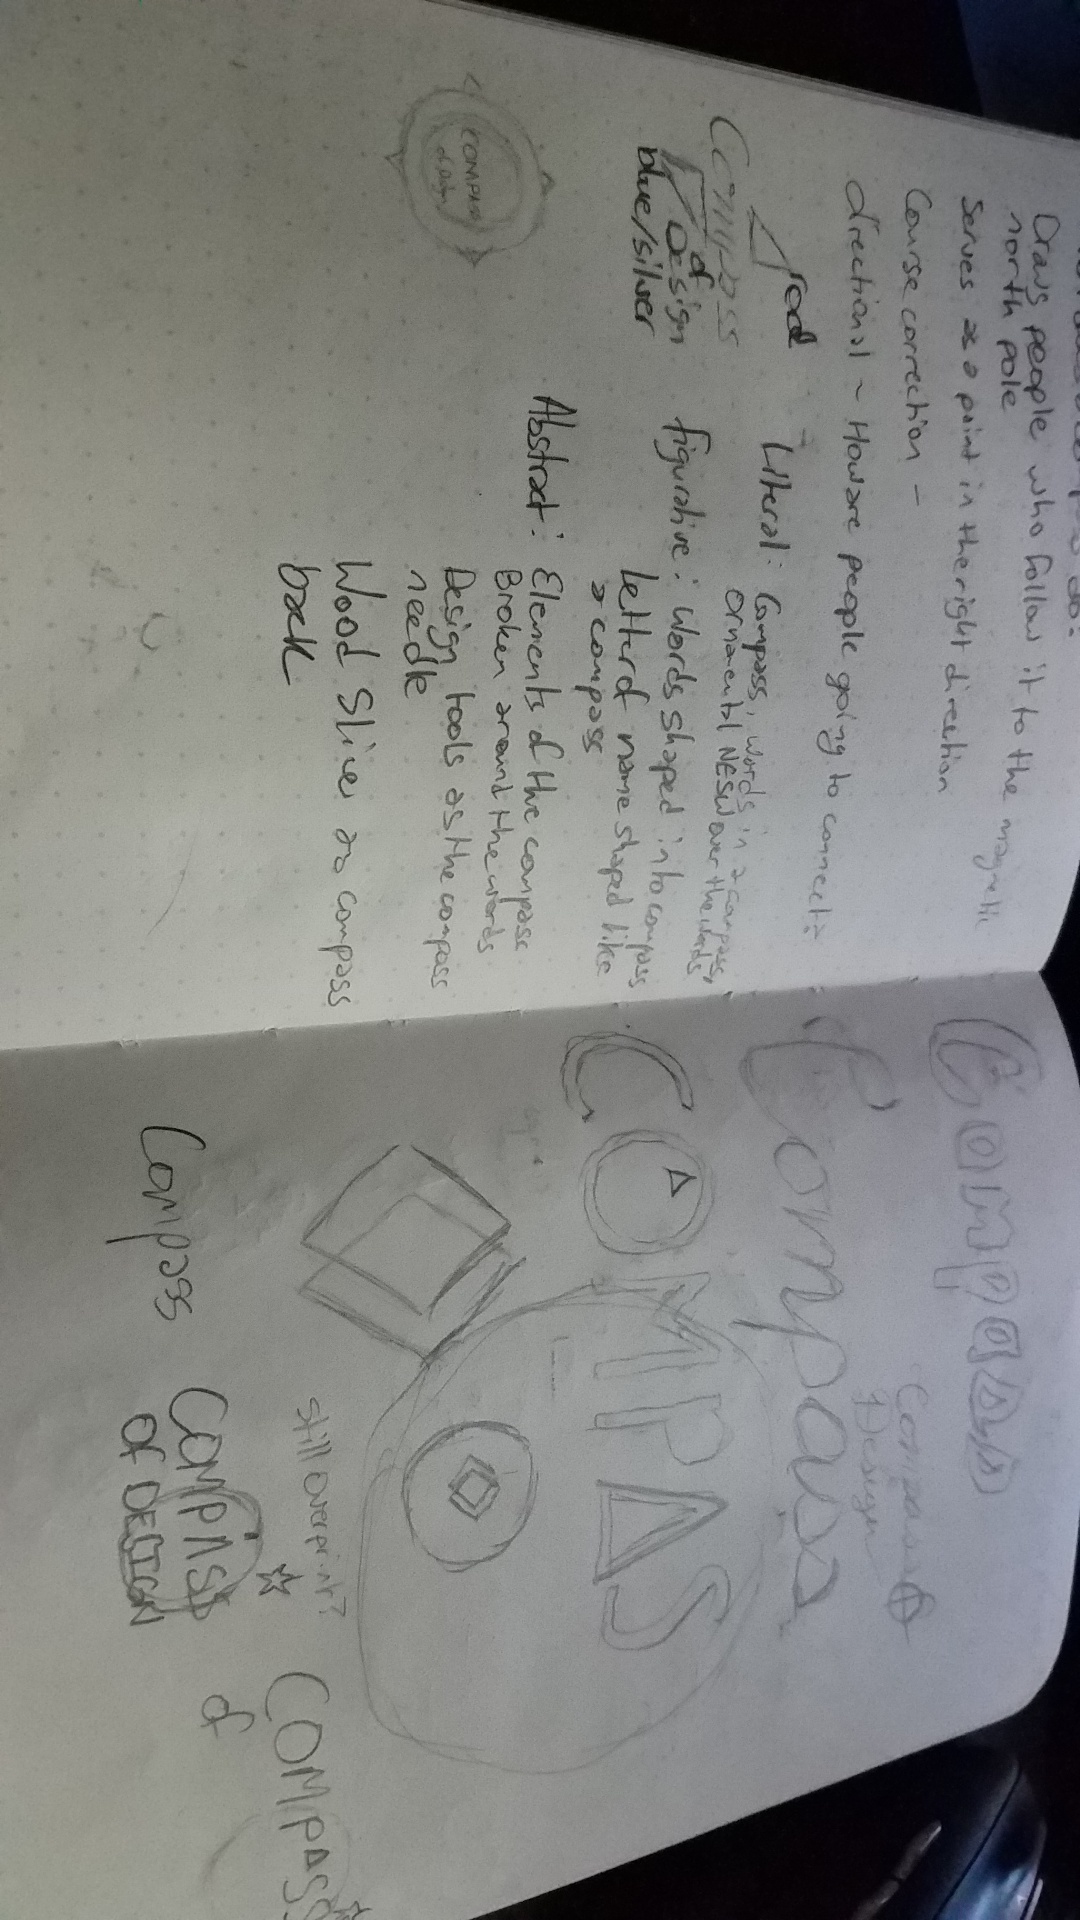 do?
Draws people who follow it to the magnetic
north pole
Serves as a point in the right direction
Course correction -
directional ~ How are people going to connect?
red
Compass
of
Design
blue/silver
Literal: Compass, words in a compass,
Ornamental NESW over the words
figurative: Words shaped into compass
Letter of name shaped like
a compass
Abstract: Elements of the compass
Broken around the words
Design tools as the compass
needle
Wood Slice as compass
back
COMPASS
of Design
Compass
Compass
Design
Compass
COMPAS
still overprint?
COMPASS
of
Compass
COMPASS
OF DESIGN